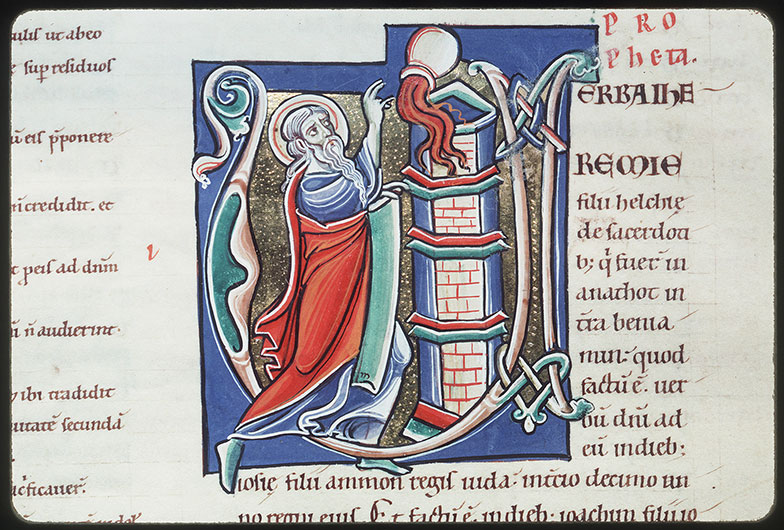 ulis ut abeo
sup residuos
eis p̄ponere
credidit. et
p eis ad dn̄m
n̄ audierint.
ibi tradidit
secundā
P R O
Pheta.
ERBA IHE
REMIE
filii helchie
de sacerdoti
b; q̇ fuer̄ in
anathot in
t̄ra benia
min: quod
factū ē. uer
bū dn̄i ad
eū in dieb;
iosie filii ammon regis iuda. in t̄cio decimo an
no regni eius. Et factū ē. in dieb; ioachim filii io